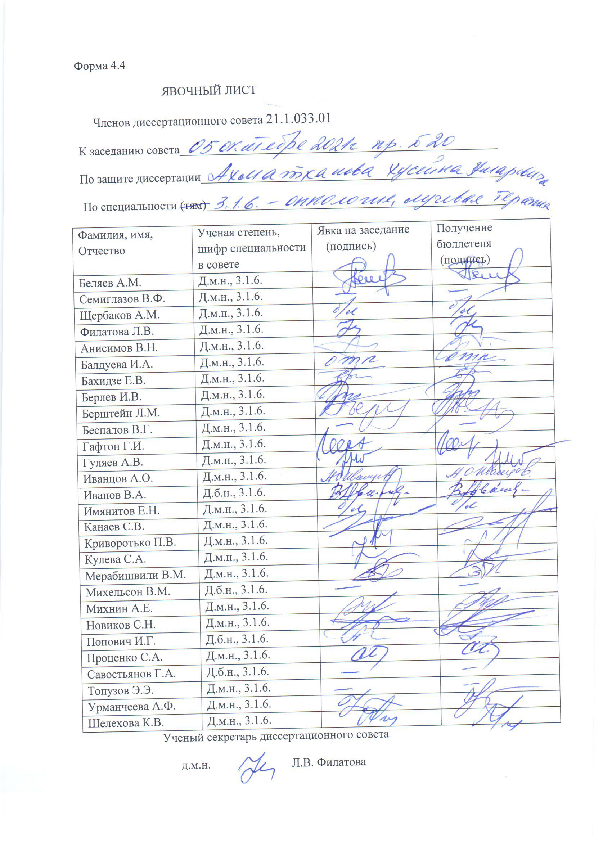 Форма 4.4
ЯВОЧНЫЙ ЛИСТ
Членов диссертационного совета 21.1.033.01
К заседанию совета 05 октября 2021г пр. № 20
По защите диссертации Ахматханова Хусейна Умаровича
По специальности (тям) 3.1.6. – онкология, лучевая терапия
Фамилия, имя, Отчество Ученая степень, шифр специальности в совете Явка на заседание (подпись) Получение бюллетеня (подпись)
Беляев А.М. Д.м.н., 3.1.6.
Семиглазов В.Ф. Д.м.н., 3.1.6. — —
Щербаков А.М. Д.м.н., 3.1.6. б/л б/л
Филатова Л.В. Д.м.н., 3.1.6.
Анисимов В.Н. Д.м.н., 3.1.6.
Балдуева И.А. Д.м.н., 3.1.6. отп отп
Бахидзе Е.В. Д.м.н., 3.1.6.
Берлев И.В. Д.м.н., 3.1.6.
Берштейн Л.М. Д.м.н., 3.1.6.
Беспалов В.Г. Д.м.н., 3.1.6. — —
Гафтон Г.И. Д.м.н., 3.1.6.
Гуляев А.В. Д.м.н., 3.1.6.
Иванцов А.О. Д.м.н., 3.1.6.
Иванов В.А. Д.б.н., 3.1.6.
Имянитов Е.Н. Д.м.н., 3.1.6. б/л б/л
Канаев С.В. Д.м.н., 3.1.6.
Криворотько П.В. Д.м.н., 3.1.6.
Кулева С.А. Д.м.н., 3.1.6.
Мерабишвили В.М. Д.м.н., 3.1.6.
Михельсон В.М. Д.б.н., 3.1.6. — —
Михнин А.Е. Д.м.н., 3.1.6.
Новиков С.Н. Д.м.н., 3.1.6.
Попович И.Г. Д.б.н., 3.1.6.
Проценко С.А. Д.м.н., 3.1.6.
Савостьянов Г.А. Д.б.н., 3.1.6. — —
Топузов Э.Э. Д.м.н., 3.1.6. — —
Урманчеева А.Ф. Д.м.н., 3.1.6.
Шелехова К.В. Д.м.н., 3.1.6.
Ученый секретарь диссертационного совета
д.м.н. Л.В. Филатова